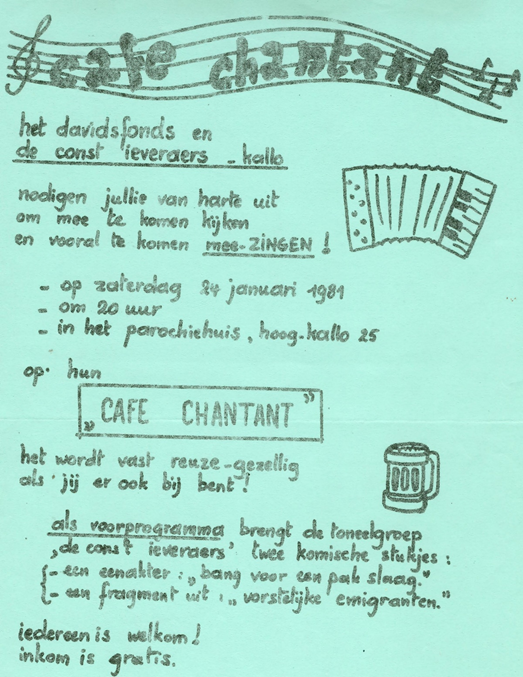 cafe chantant
het davidsfonds en
de const ieveraers - kallo
nodigen jullie van harte uit
om mee te komen kijken
en vooral te komen mee-ZINGEN !
- op zaterdag 24 januari 1981
- om 20 uur
- in het parochiehuis, hoog-kallo 25
op hun
„CAFE CHANTANT”
het wordt vast reuze-gezellig
als jij er ook bij bent!
als voorprogramma brengt de toneelgroep
‚de const ieveraers’ twee komische stukjes :
- een eenakter : „bang voor een pak slaag.”
- een fragment uit : „vorstelijke emigranten.”
iedereen is welkom!
inkom is gratis.